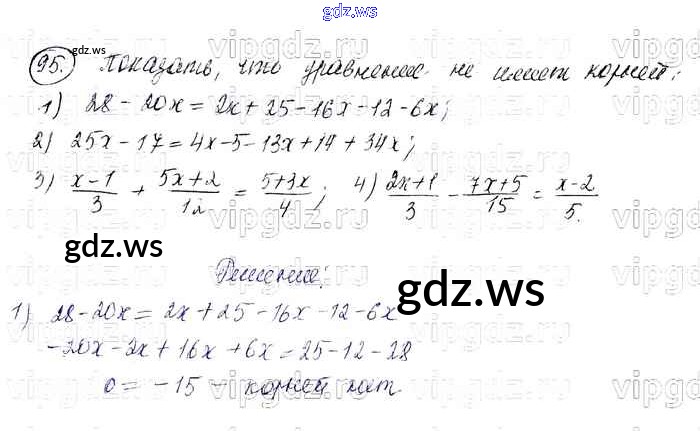 gdz.ws
gdz.ws
95. Показать, что уравнение не имеет корней:
1) 28 - 20x = 2x + 25 - 16x - 12 - 6x;
2) 25x - 17 = 4x - 5 - 13x + 14 + 34x;
3) (x-1)/3 + (5x+2)/12 = (5+3x)/4; 4) (2x+1)/3 - (7x+5)/15 = (x-2)/5.
gdz.ws
Решение:
gdz.ws
1) 28 - 20x = 2x + 25 - 16x - 12 - 6x
-20x - 2x + 16x + 6x = 25 - 12 - 28
0 = -15 - корней нет